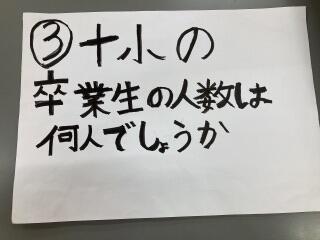 ③十小の
卒業生の人数は
何人でしょうか